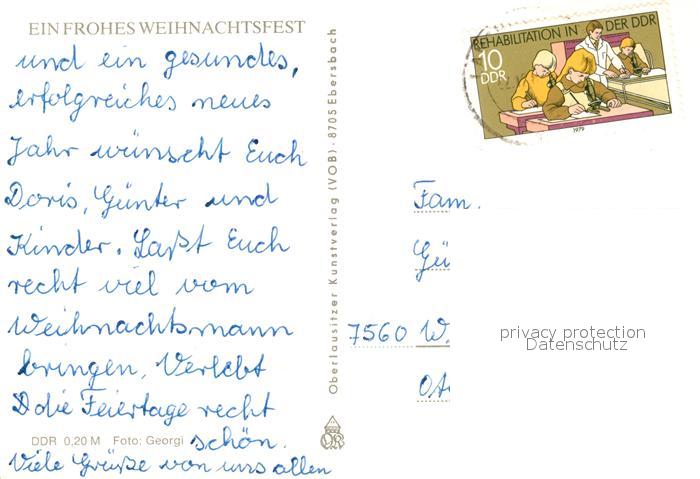 EIN FROHES WEIHNACHTSFEST
und ein gesundes,
erfolgreiches neues
Jahr wünscht Euch
Doris, Günter und
Kinder. Laßt Euch
recht viel vom
Weihnachtsmann
bringen. Verlebt
die Feiertage recht
schön.
Viele Grüße von uns allen
DDR 0,20 M Foto: Georgi
Oberlausitzer Kunstverlag (VOB) · 8705 Ebersbach
REHABILITATION IN DER DDR
10
DDR
1979
Fam.
Gü
7560 W.
privacy protection
Datenschutz